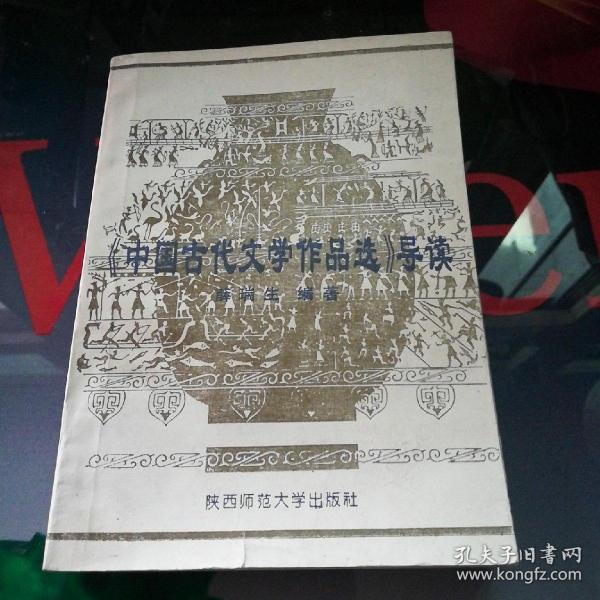 《中国古代文学作品选》导读
薛瑞生 编著
陕西师范大学出版社
孔夫子旧書网
www.kongfz.com